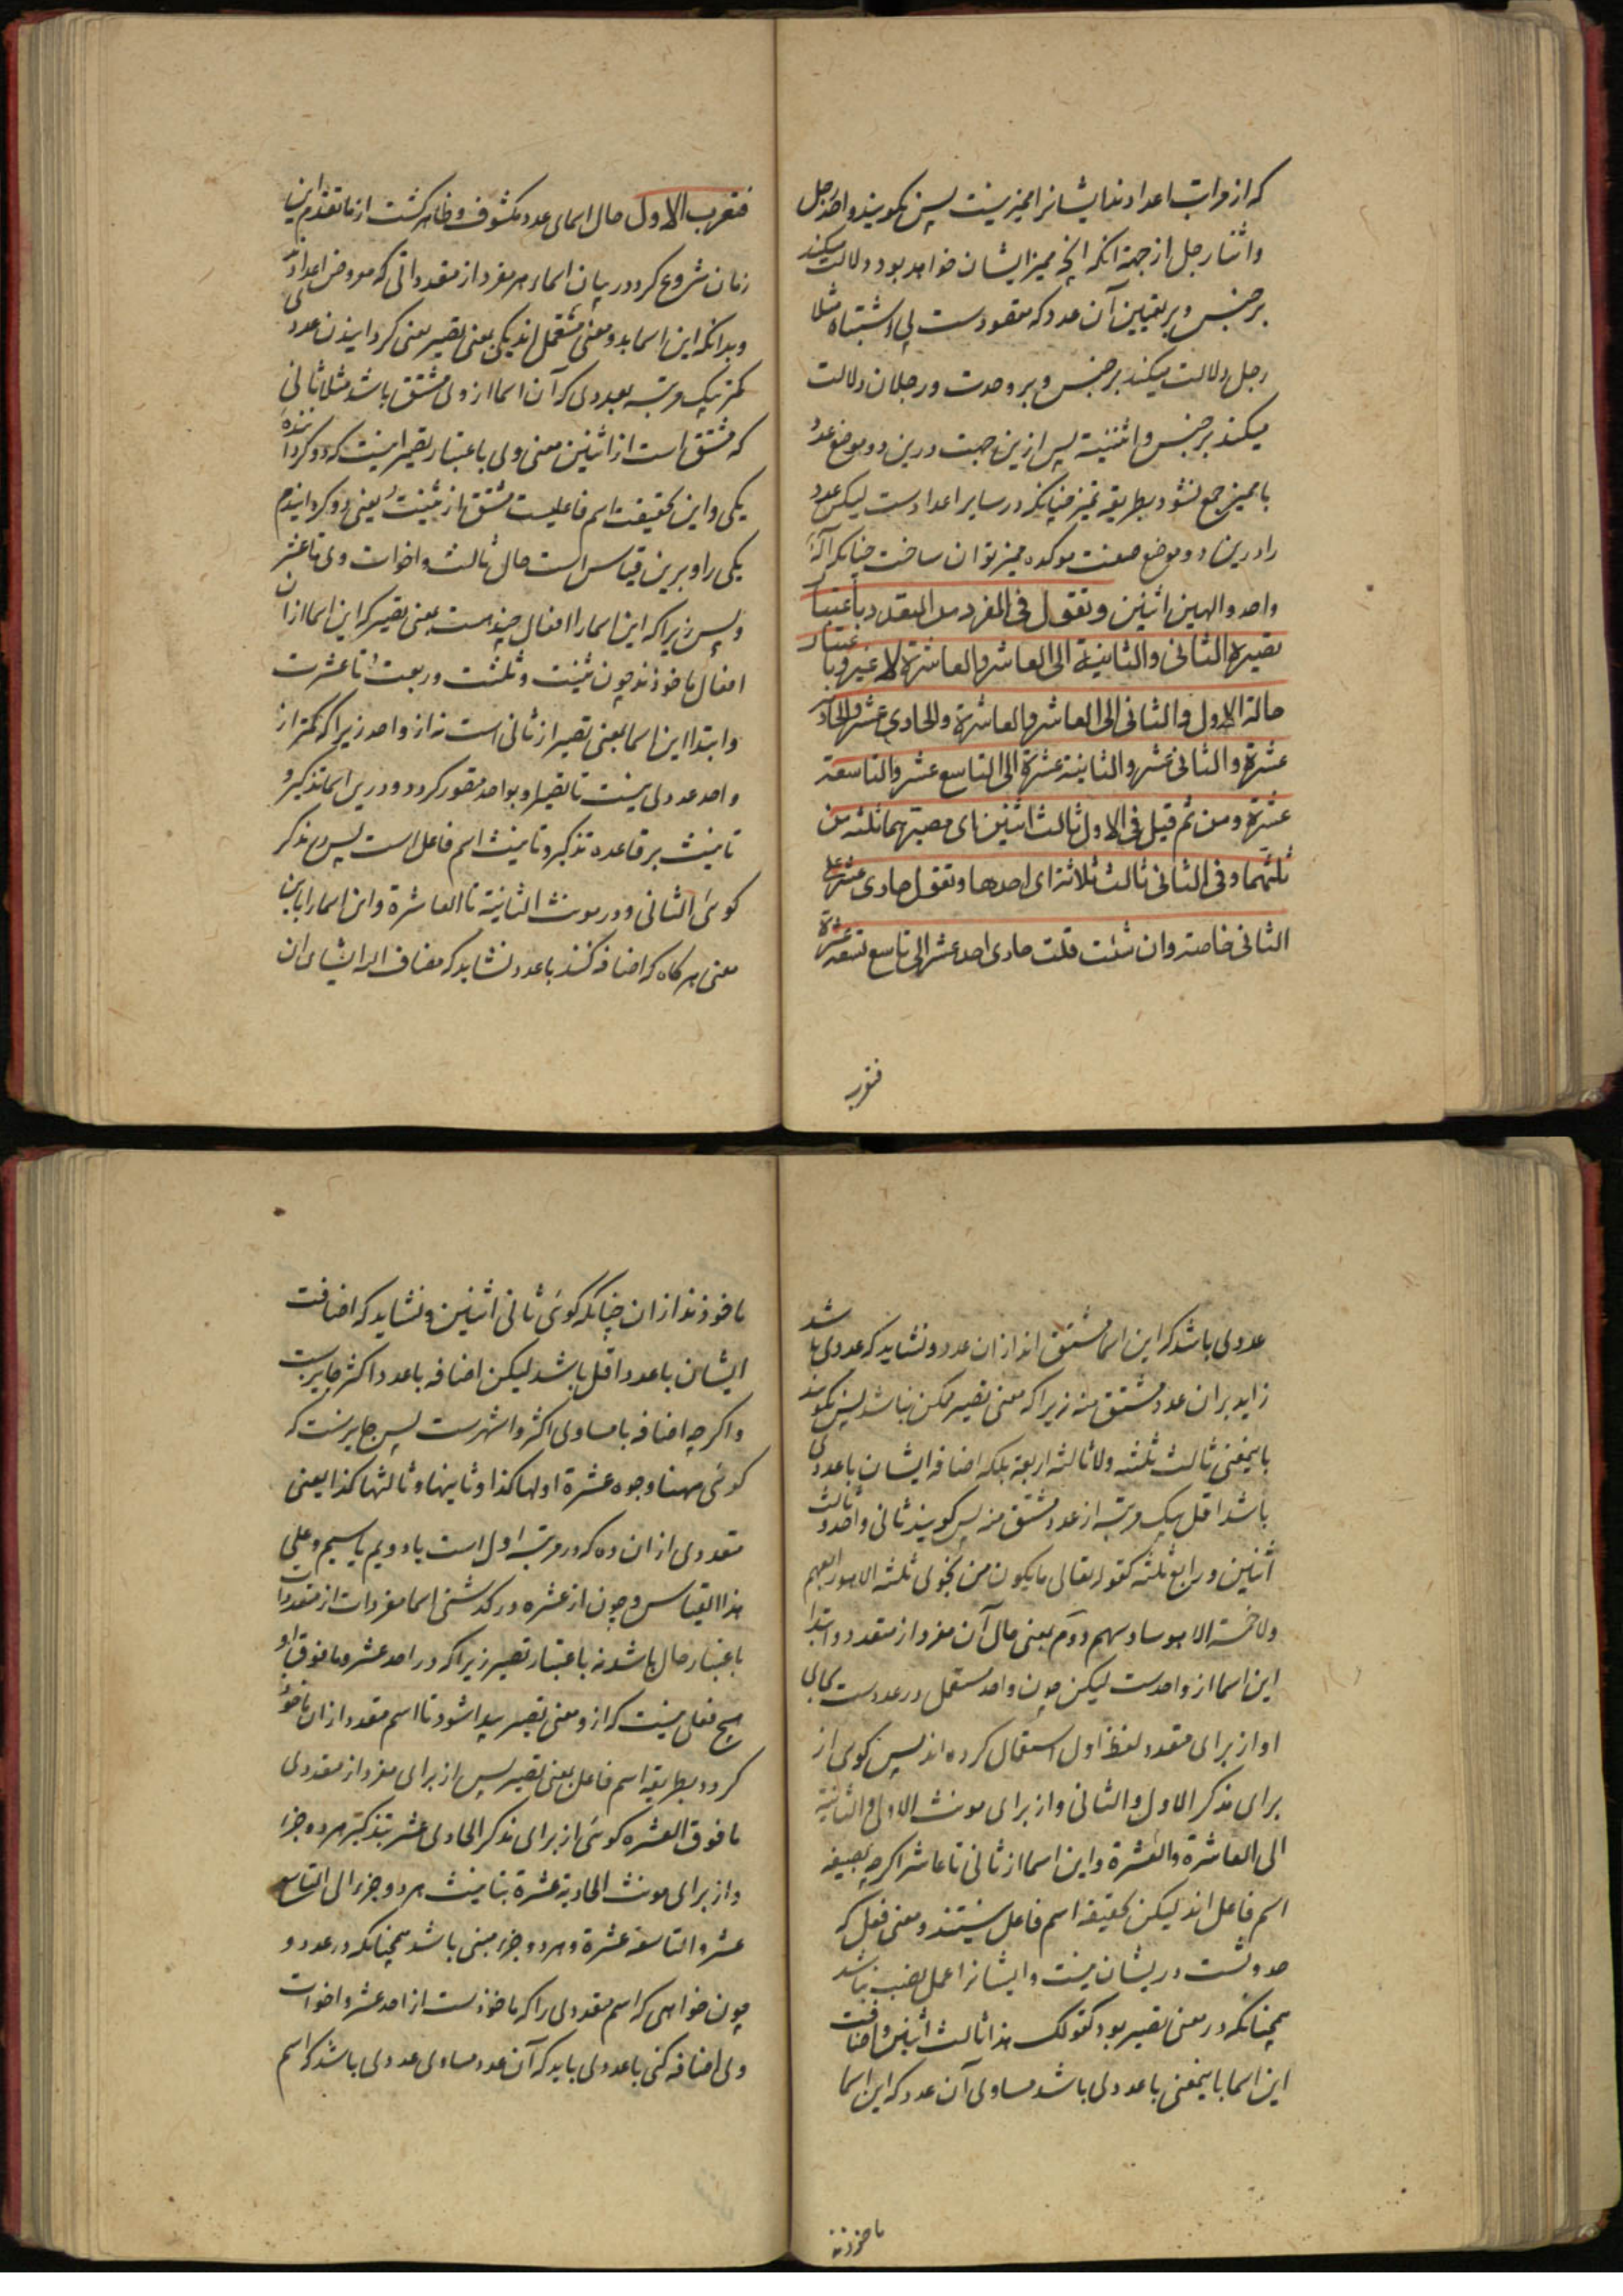 که از مراتب اعدادند ایشانرا ممیز نیست پس نکویند واحد رجل
و اثنا رجل از جهة انکه انچه ممیز ایشان خواهد بود دلالت میکند
بر جنس و بر تعیین آن عدد که مقصودست بی اشتباه مثلا
رجل دلالت میکند بر جنس و بر وحدت و رجلان دلالت
میکند بر جنس و اثنینیة پس ازین جهت درین دو موضع عدد
با ممیز جمع نشود بطریقه تمیز چنانکه در سایر اعدادست لیکن عدد
را درین دو موضع صفت موکده ممیز توان ساخت چنانکه آله
واحد و الهین اثنین وتقول فی المفرد من المتعدد باعتبار
تصییره الثانی والثانیة الی العاشر والعاشرة لا غیر وباعتبار
حاله الاول والثانی الی العاشر والعاشرة والحادی عشر والحادیة
عشرة والثانی عشر والثانیة عشرة الی التاسع عشر والتاسعة
عشرة ومن ثم قیل فی الاول ثالث اثنین ای مصیرهما ثلثة من
ثلثتهما وفی الثانی ثالث ثلاثة ای احدها وتقول حادی عشر علی
الثانی خاصة وان شئت قلت حادی احد عشر الی تاسع تسعة عشرة
فتعرب
فتعرب الاول حال اسمای عدد مکشوف و ظاهر کشت از ما تقدم این
زمان شروع کرد در بیان اسماء هر مفرد از متعدداتی که معروض اعدادند
وبدانکه این اسما بدو معنی مستعمل اند یکی بمعنی تصییر معنی کردانیدن عدد
کمتر بیک مرتبه بعددی که آن اسما از وی مشتق باشد مثلا ثانی
که مشتق است از اثنین معنی وی باعتبار تصییر اینست که دو کرداننده
یکی و این بحقیقت اسم فاعلیست مشتق از ثنیت یعنی دو کردانیدم
یکی را و برین قیاس است حال ثالث و اخوات وی تا عشر
و پس زیرا که این اسما را افعال چند هست بمعنی تصییر که این اسما ازان
افعال ماخوذند چون ثنیت و ثلثت و ربعت تا عشرت
و ابتدا این اسما بمعنی تصییر از ثانی است نه از واحد زیرا که کمتر از
واحد عددی نیست تا تصییر او بواحد متصور کردد و درین اسما تذکیر و
تانیث بر قاعده تذکیر و تانیث اسم فاعل است پس در مذکر
کوئی الثانی و در مونث الثانیة تا العاشرة و این اسما را باین
معنی هرکاه که اضافه کنند با عدد نشاید که مضاف الیه ایشان ان
عددی باشد که این اسما مشتق اند ازان عدد و نشاید که عددی باشد
زاید بران عدد مشتق منه زیرا که معنی تصییر ممکن نباشد پس نکویند
باینمعنی ثالث ثلثه ولا ثالث اربعة بلکه اضافه ایشان با عددی
باشد اقل بیک مرتبه از عدد مشتق منه پس کویند ثانی واحد و ثالث
اثنین و رابع ثلثة کقوله تعالی ما یکون من نجوی ثلثة الا هو رابعهم
ولا خمسة الا هو سادسهم دوم بمعنی حال آن مفرد از متعدد و ابتدا
این اسما از واحدست لیکن چون واحد مستعمل در عددست بجای
او از برای متعدد لفظ اول استعمال کرده اند پس کوی از
برای مذکر الاول والثانی و از برای مونث الاولی والثانیة
الی العاشرة والعشرة و این اسما از ثانی تا عاشر اکرچه بصیغه
اسم فاعل اند لیکن بحقیقه اسم فاعل نیستند و معنی فعل که
حدوثست دریشان نیست و ایشانرا عمل نصب نباشد
همچنانکه در معنی تصییر بود کقولک هذا ثالث اثنین و اضافت
این اسما باینمعنی با عددی باشد مساوی آن عدد که این اسما
ماخوذند
ماخوذند ازان چنانکه کوئی ثانی اثنین و نشاید که اضافت
ایشان با عدد اقل باشد لیکن اضافه با عدد اکثر جایزست
و اکرچه اضافه با مساوی اکثر و اشهرست پس جایزست که
کوئی مهنا وجوه عشرة اولها کذا وثانیها وثالثها کذا یعنی
متعددی ازان ده که در مرتبه اول است یا دویم یا سیم وعلی
هذا القیاس و چون از عشره درکذشتی اسما مفردات از متعددات
باعتبار حال باشد نه باعتبار تصییر زیرا که در احد عشر و مافوق او
هیچ فعلی نیست که ازو معنی تصییر پیدا شود تا اسم متعدد ازان ماخوذ
کردد بطریقه اسم فاعل بمعنی تصییر پس از برای مفرد از متعددی
مافوق العشره کوئی از برای مذکر الحادی عشر بتذکیر هر دو جزء
و از برای مونث الحادیة عشرة بتانیث هر دو جزء الی التاسع
عشر والتاسعة عشرة و هر دو جزء مبنی باشد همچنانکه در عدد و
چون خواهی که اسم متعددی را که ماخوذست از احد عشر و اخوات
وی اضافه کنی با عددی باید که آن عدد مساوی عددی باشد که اسم